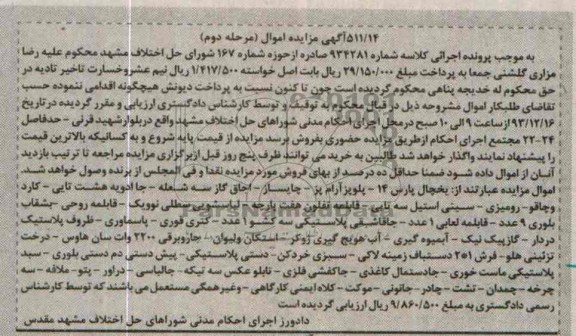 ۵۱۱/۱۴آگهی مزایده اموال (مرحله دوم)
به موجب پرونده اجرائی کلاسه شماره ۹۳۴۲۸۱ صادره از حوزه شماره ۱۶۷ شورای حل اختلاف مشهد محکوم علیه رضا
مزاری گلشنی جمعا به پرداخت مبلغ ۲۹/۱۵۰/۰۰۰ ریال بابت اصل خواسته ۱/۴۱۷/۵۰۰ ریال نیم عشر وخسارت تاخیر تادیه در
حق محکوم له خدیجه پناهی محکوم گردیده است چون تا کنون نسبت به پرداخت دیونش هیچگونه اقدامی ننموده حسب
تقاضای طلبکار اموال مشروحه ذیل در قبال محکوم به توقیف و توسط کارشناس دادگستری ارزیابی و مقرر گردیده در تاریخ
۹۳/۱۲/۱۶ از ساعت ۹ الی ۱۰ صبح در محل اجرای احکام مدنی شوراهای حل اختلاف مشهد واقع در بلوار شهید قرنی - حدفاصل
۲۲-۲۴ مجتمع اجرای احکام از طریق مزایده حضوری بفروش برسد مزایده از قیمت پایه شروع و به کسانیکه بالاترین قیمت
را پیشنهاد نمایند واگذار خواهد شد طالبین به خرید می توانند ظرف پنج روز قبل از برگزاری مزایده مراجعه تا ترتیب بازدید
آنان از اموال داده شود ضمنا حداقل ده درصد از بهای فروش مورد مزایده نقدا و فی المجلس از برنده وصول خواهد شد.
اموال مزایده عبارتند از: یخچال پارس ۱۴ - پلوپز آرام پز - چایساز - اجاق گاز سه شعله - جا ادویه هشت تایی - کارد
وچاقو - رومیزی - سینی استیل سه تایی - قابلمه تفلون هفت پارچه - لباسشویی سطلی نوویک - قابلمه روحی - بشقاب
بلوری ۹ عدد - قابلمه لعابی ۱ عدد - جاقاشقی پلاستیکی سه کشو ۱ عدد - کتری قوری - پاسماوری - ظروف پلاستیک
دردار - گازپیک نیک - آبمیوه گیری - آب هویج گیری ژوکر - استکان ولیوان - جاروبرقی ۲۲۰۰ وات سان هاوس - درخت
تزئینی هلو - فرش ۲×۱۵ دستباف زمینه لاکی - سبزی خردکن - دستی پلاستیکی - پیش دستی دم دستی بلوری - سبد
پلاستیکی ماست خوری - جادستمال کاغذی - جاکفشی فلزی - تابلو عکس سه تیکه - جالباسی - دراور - پتو - ملافه - سه
چرخه - چمدان - تشت - چادر - جانونی - موکت - کلاه ایمنی کارگاهی - وغیر همگی مستعمل می باشند که توسط کارشناس
رسمی دادگستری به مبلغ ۹/۸۶۰/۵۰۰ ریال ارزیابی گردیده است
دادورز اجرای احکام مدنی شوراهای حل اختلاف مشهد مقدس
ParsNamadData